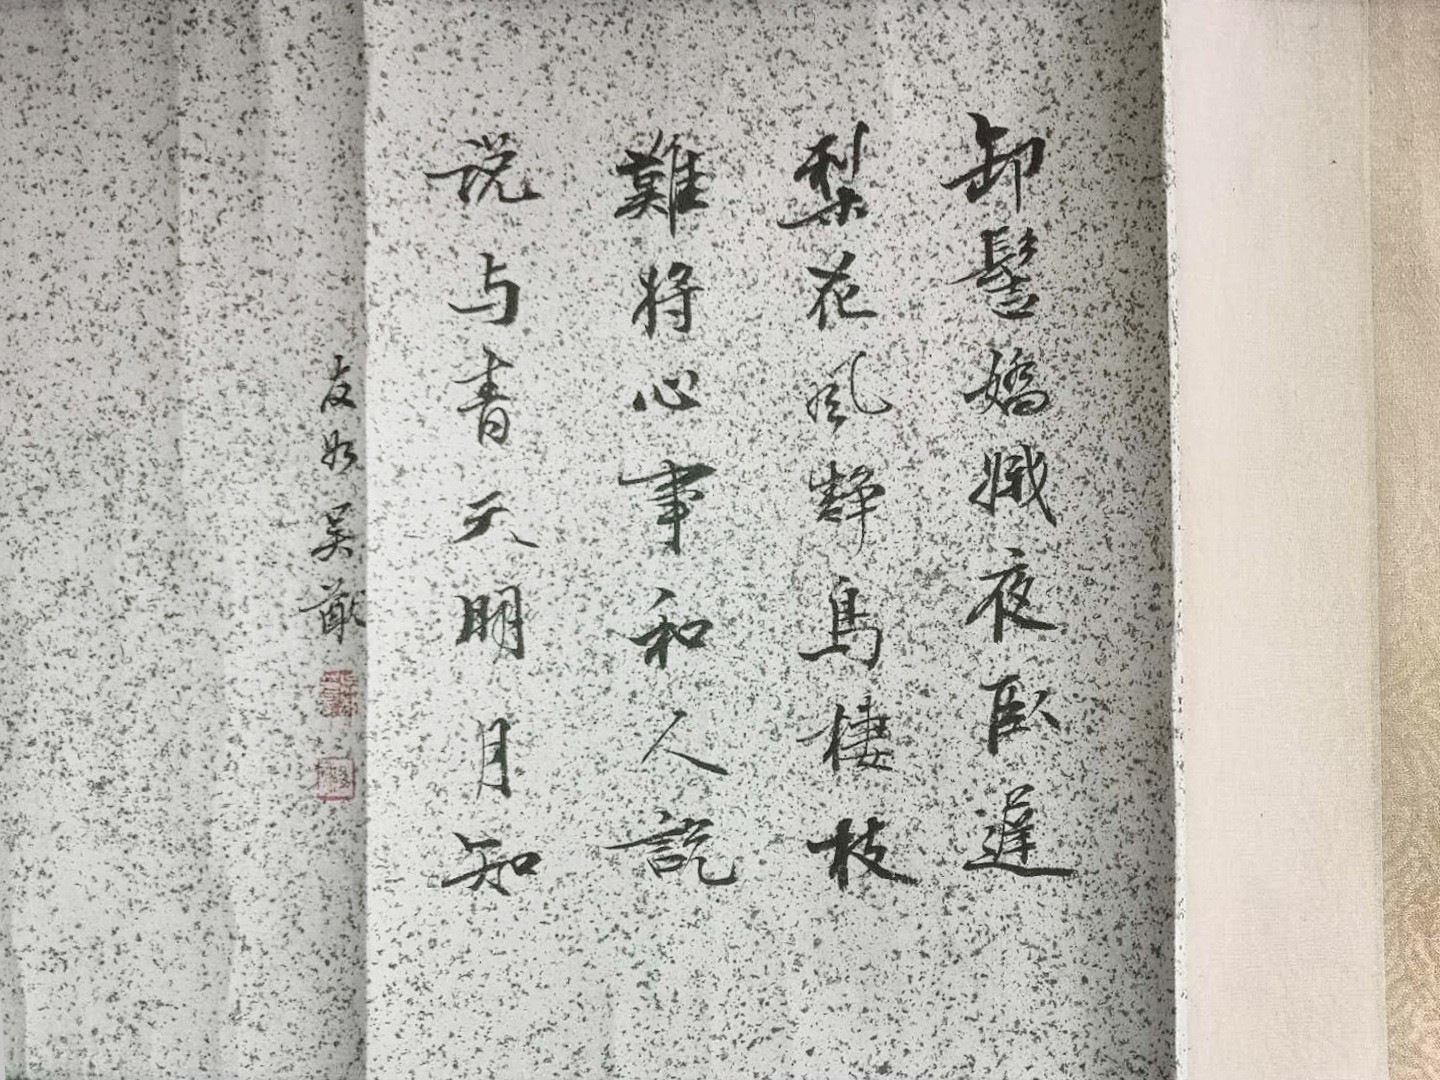 卸髻嬌娥夜臥遲
梨花風靜鳥棲枝
難將心事和人説
説与青天明月知
友如吴猷